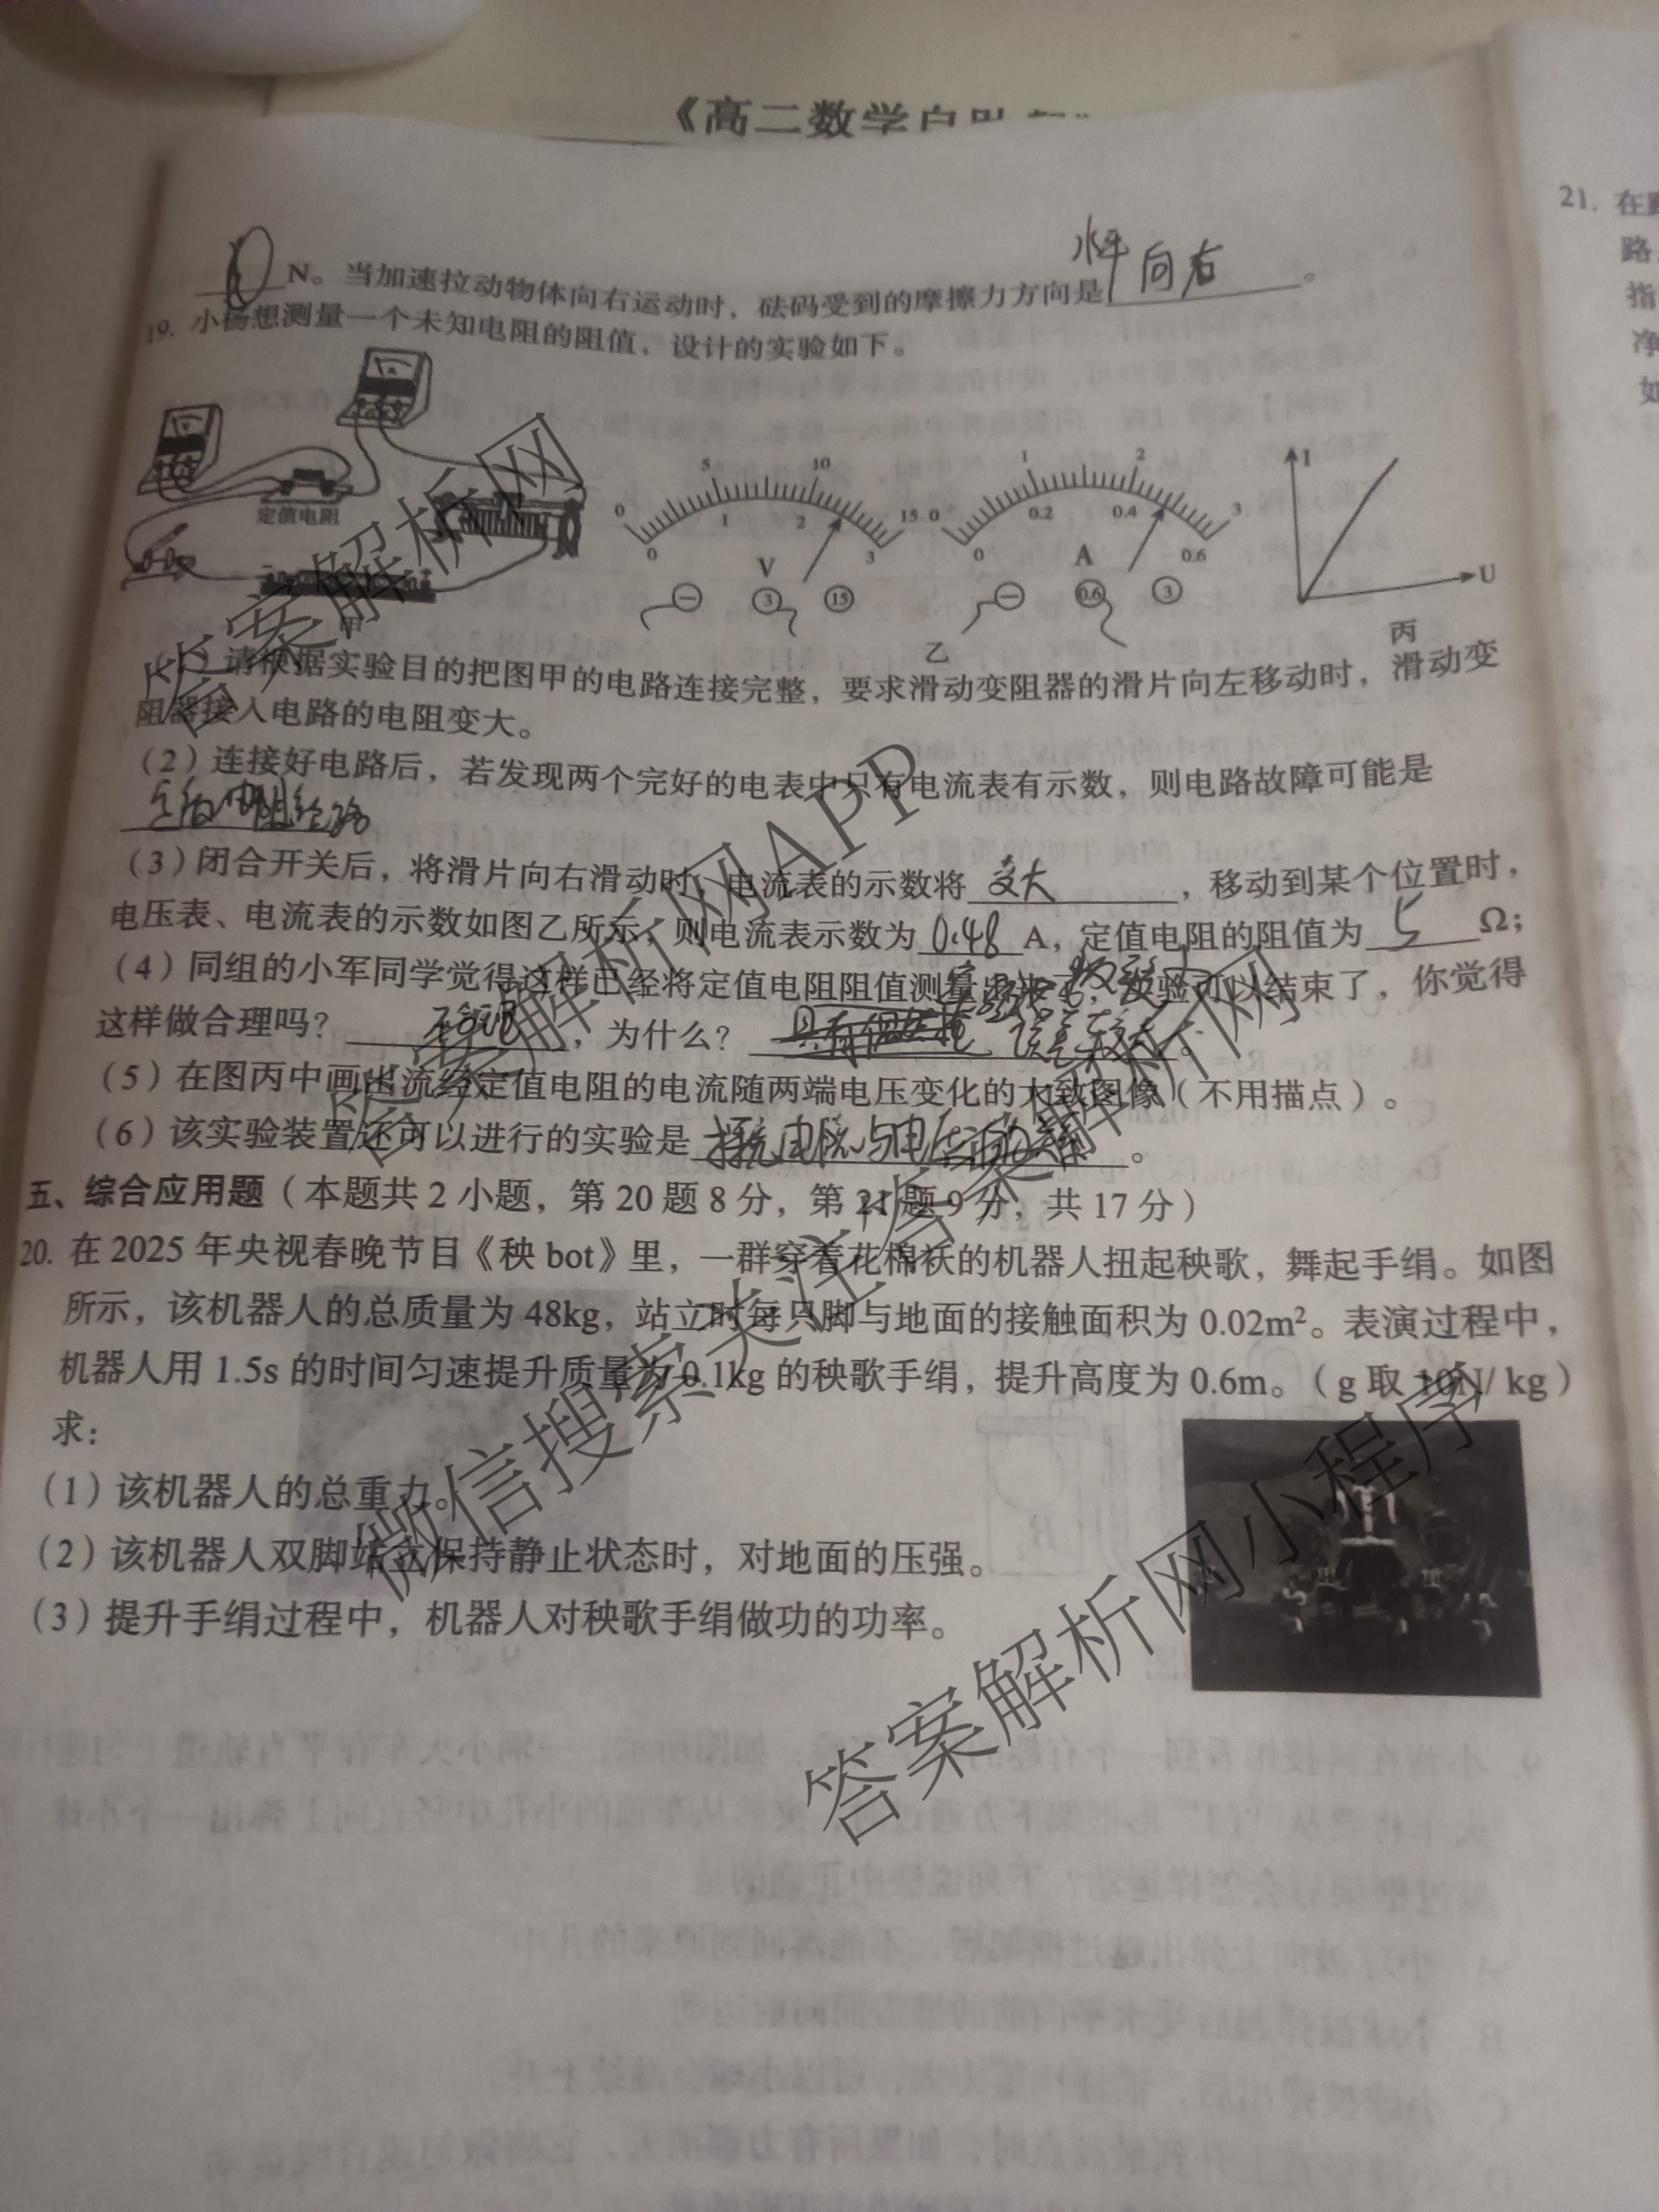 《高二数学自助
0 N。当加速拉动物体向右运动时，砝码受到的摩擦力方向是 水平向右 。
19. 小杨想测量一个未知电阻的阻值，设计的实验如下。
定值电阻
甲
0 5 10 15
0 1 2 3
V
− 3 15
0 1 2 3
0 0.2 0.4 0.6
A
− 0.6 3
乙
I
U
丙
（1）请根据实验目的把图甲的电路连接完整，要求滑动变阻器的滑片向左移动时，滑动变
阻器接入电路的电阻变大。
（2）连接好电路后，若发现两个完好的电表中只有电流表有示数，则电路故障可能是
定值电阻短路
（3）闭合开关后，将滑片向右滑动时，电流表的示数将 变大 ，移动到某个位置时，
电压表、电流表的示数如图乙所示，则电流表示数为 0.48 A，定值电阻的阻值为 5 Ω；
（4）同组的小军同学觉得这样已经将定值电阻阻值测量出来了，实验可以结束了，你觉得
这样做合理吗？ 不合理 ，为什么？ 实验次数 误差较大 。
（5）在图丙中画出流经定值电阻的电流随两端电压变化的大致图像（不用描点）。
（6）该实验装置还可以进行的实验是 探究电流与电压 。
五、综合应用题（本题共 2 小题，第 20 题 8 分，第 21 题 9 分，共 17 分）
20. 在 2025 年央视春晚节目《秧 bot》里，一群穿着花棉袄的机器人扭起秧歌，舞起手绢。如图
所示，该机器人的总质量为 48kg，站立时每只脚与地面的接触面积为 0.02m²。表演过程中，
机器人用 1.5s 的时间匀速提升质量为 0.1kg 的秧歌手绢，提升高度为 0.6m。（g 取 10N/ kg）
求：
（1）该机器人的总重力。
（2）该机器人双脚站立保持静止状态时，对地面的压强。
（3）提升手绢过程中，机器人对秧歌手绢做功的功率。
21. 在
路
指
净
如
答案解析网
答案解析网APP
微信搜索关注答案解析网
答案解析网小程序